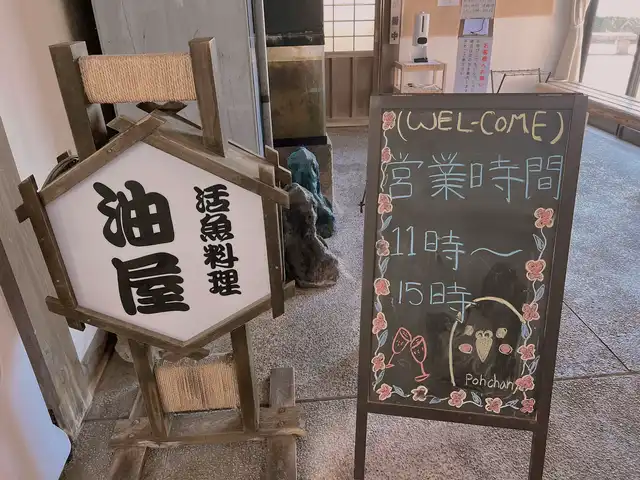 活魚料理
油屋
(WEL-COME)
営業時間
11時〜
15時
Pohchan